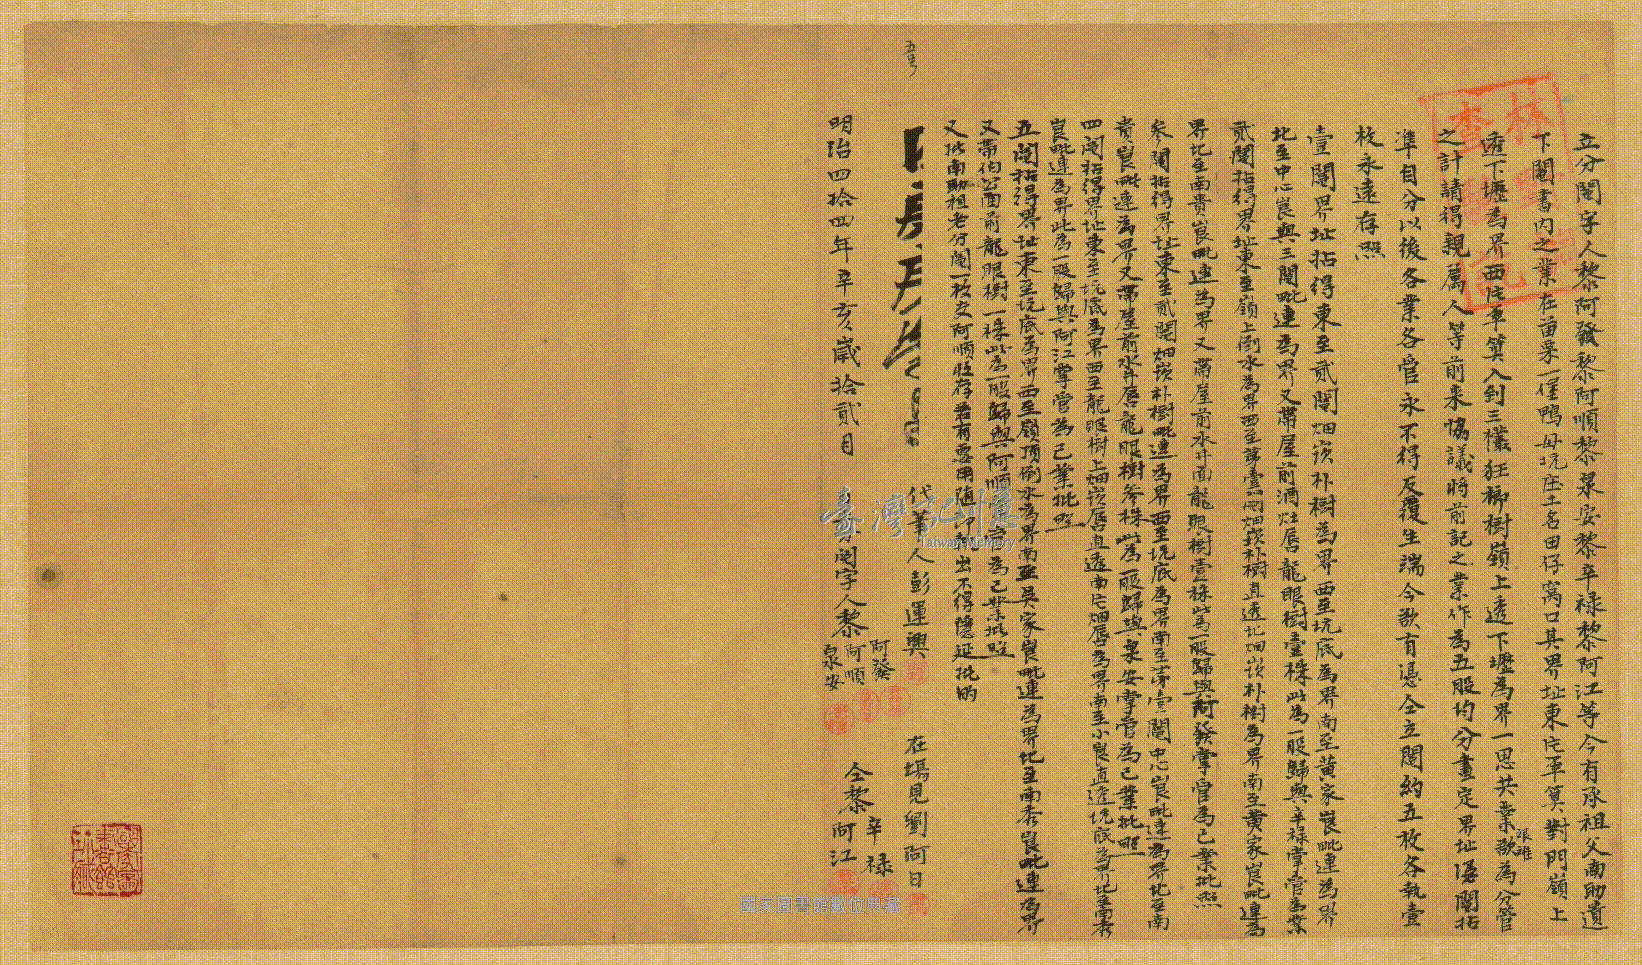 立分鬮字人黎阿發黎阿順黎泉安黎辛祿黎阿江等今有承祖父南助遺
下鬮書內之業在苗栗一堡鴨母坑庄土名田仔窩口其界址東片車算對門嶺上
透下壢為界西片車算入到三欉狂柳樹嶺上透下壢為界一思共業歇為分管
之計請得親属人等前來恊議將前記之業作為五股均分畫定界址憑鬮拈
準自分以後各業各管永不得反覆生端今欲有憑仝立鬮約五枚各執壹
枚永遠存照
壹鬮界址拈得東至貳鬮畑崁朴樹為界西至坑底為界南至黃家崀毗連為界
北至中心崀與三鬮毗連為界又帶屋前酒灶唇龍眼樹壹株此為一股歸與辛祿掌管為業
貳鬮拈得界址東至嶺上倒水為界西至第壹鬮畑崁朴樹直透北畑崁朴樹為界南至黃家崀毗連為
界北至南貴崀毗連為界又帶屋前水井面龍眼樹壹株此為一股歸與阿發掌管為己業批照
叁鬮拈得界址東至貳鬮畑崁朴樹毗連為界西至坑底為界南至第壹鬮中心崀毗連為界北至南
貴崀毗連為界又帶屋前水井唇龍眼樹叁株此為一股歸與泉安掌管為己業批照
四鬮拈得界址東至坑底為界西至龍眼樹上畑崁唇直透南片畑唇為界南至小崀直透坑底為界北至南秀
崀毗連為界此為一股歸與阿江掌管為己業批照
五鬮拈得界址東至坑底為界西至嶺頂倒水為界南至吳家崀毗連為界北至南秀崀毗連為界
又帶伯公面前龍眼樹一株此為一股歸與阿順為己業批照
又批南助祖老分鬮一枚交阿順收存若有要用隨即執出不得隱延批的
五号
代筆人彭運興
在塲見劉阿日
明治四拾四年辛亥歲拾貳月
鬮字人黎
阿發
阿順
泉安
仝黎
辛祿
阿江
臺灣記憶
Taiwan Memory
國家圖書館數位典藏